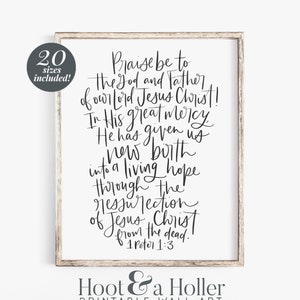 20
sizes
included!
Praise be to
the God and Father
of our Lord Jesus Christ!
In His great mercy
He has given us
new birth
into a living hope
through the
ressurection
of Jesus Christ
from the dead.
1 Peter 1:3
Hoot & a Holler
PRINTABLE WALL ART